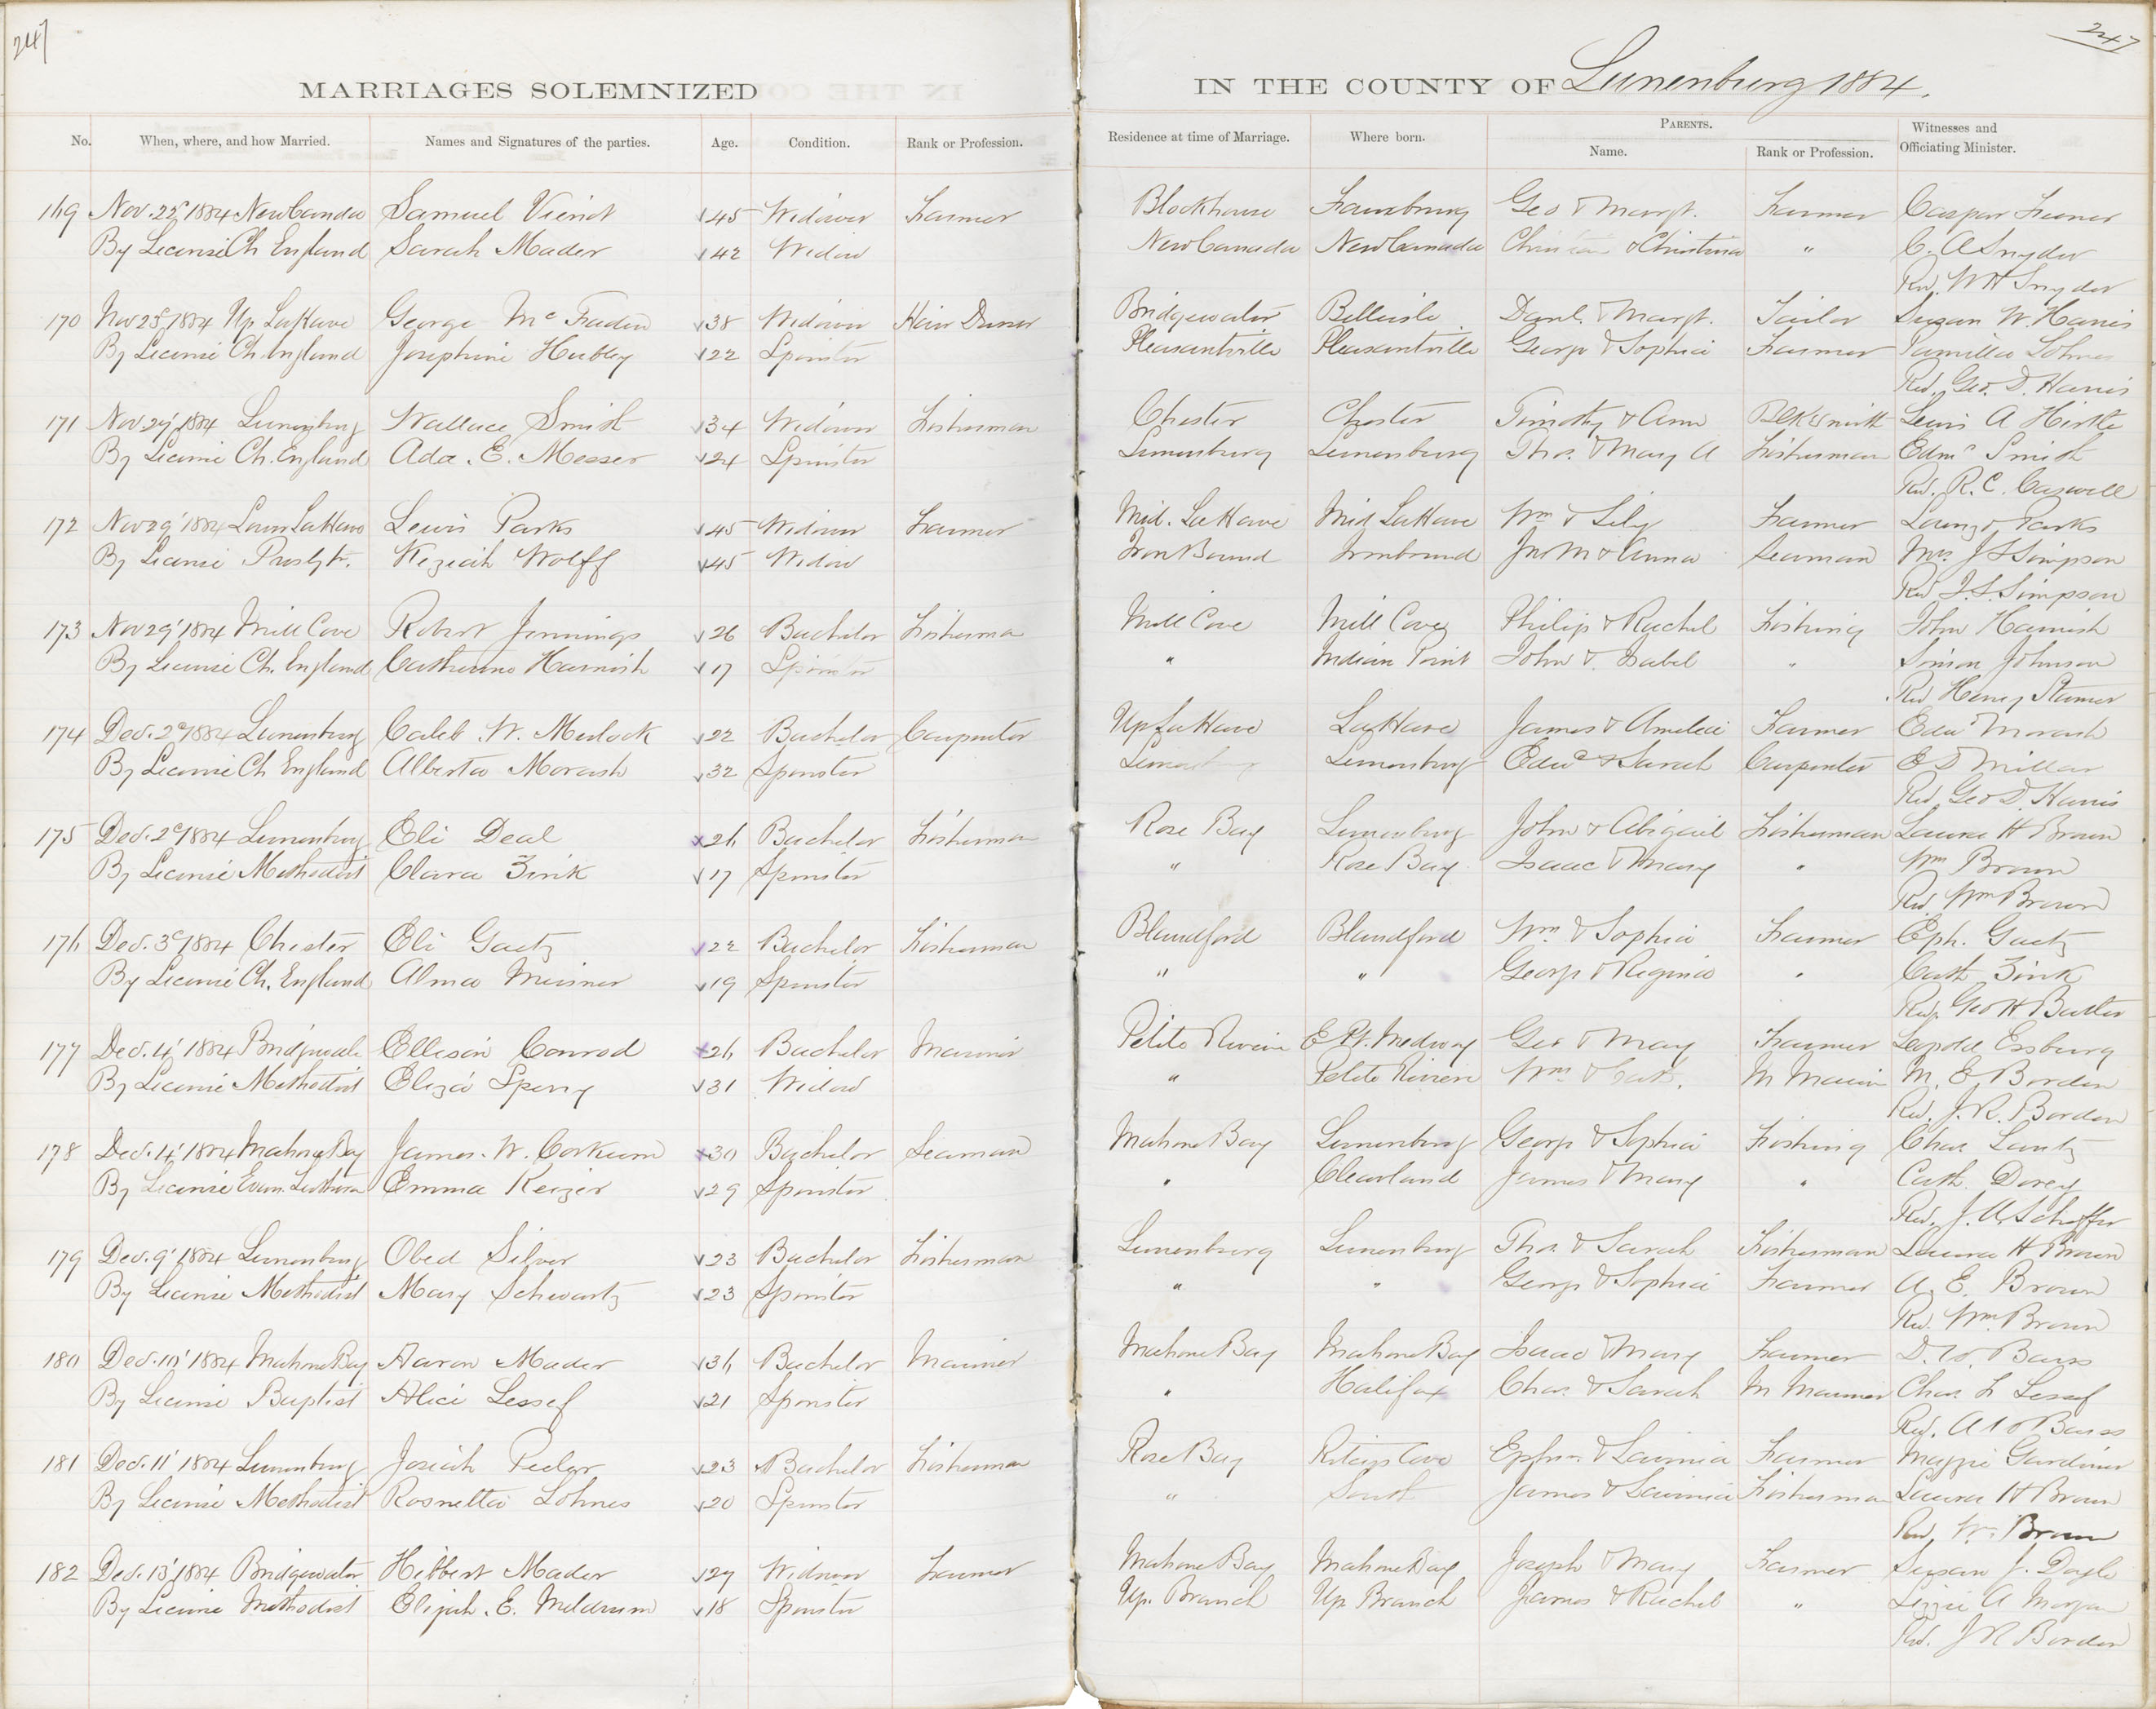 247
247
MARRIAGES SOLEMNIZED
IN THE COUNTY OF Lunenburg 1884.
No. When, where, and how Married. Names and Signatures of the parties. Age. Condition. Rank or Profession. Residence at time of Marriage. Where born. PARENTS. Name. Rank or Profession. Witnesses and Officiating Minister.
169 Nov. 22 1884 New Canada Samuel 45 Widower Farmer Blockhouse Geo & Margt. Farmer Caspar
By License Ch England Sarah Mader 42 Widow New Canada New Canada & Christina " C. A Snyder
Rev. W H Snyder
170 Nov 25 1884 Up LaHave George McFaden 38 Widower Bridgewater Belleisle Danl. & Margt. Tailor Susan W. Harris
By License Ch. England Josephine Hubley 22 Spinster Pleasantville Pleasantville George & Sophia Farmer Pamilla Lohnes
Rev. Geo. D. Harris
171 Nov 27 1884 Lunenburg Wallace Smith 34 Widower Fisherman Chester Chester Timothy & Ann Blksmith Lewis A Hirtle
By License Ch. England Ada. E. Messer 24 Spinster Lunenburg Lunenburg Thos. & Mary A Fisherman Edmd Smith
Rev. R. C. Caswell
172 Nov 29 1884 Lower LaHave Lewis Parks 45 Widower Farmer Mid. LaHave Mid LaHave Wm & Lily Farmer Lorenzo Parks
By License Presbytr. Keziah Wolff 45 Widow Iron Bound Ironbound Jno M & Anna Seaman Mrs. J S Simpson
Rev J. S. Simpson
173 Nov 29 1884 Mill Cove Robert Jennings 26 Bachelor Fisherman Mill Cove Mill Cove Philip & Rachel Fishing John Harnish
By License Ch. England Catherine Harnish 17 Spinster " Indian Point John & Isabel " Simon Johnson
Rev Henry Stamer
174 Dec. 2d 1884 Lunenburg Caleb W. Mulock 22 Bachelor Carpenter Up LaHave LaHave James & Amelia Farmer Edwd Morash
By License Ch England Alberta Morash 32 Spinster Lunenburg Lunenburg Edwd & Sarah Carpenter E D Millar
Rev. Geo D. Harris
175 Dec. 2d 1884 Lunenburg Eli Deal 26 Bachelor Fisherman Rose Bay Lunenburg John & Abigail Fisherman Laura H Brown
By License Methodist Clara Zink 17 Spinster " Rose Bay Isaac & Mary " Wm Brown
Rev. Wm Brown
176 Dec. 3d 1884 Chester Eli Gaetz 22 Bachelor Fisherman Blandford Blandford Wm & Sophia Farmer Eph. Gaetz
By License Ch. England Alma Meisner 19 Spinster " " George & Regina " Cath Zink
Rev. Geo H Butler
177 Dec. 4' 1884 Bridgewater Ellison Conrod 26 Bachelor Mariner Petite Riviere E Pt. Medway Geo & Mary Farmer Leopold Essburg
By License Methodist Eliza Sperry 31 Widow " Petite Riviere Wm & Cath. M Mariner M. E. Borden
Rev. J. R. Borden
178 Dec. 4' 1884 Mahone Bay James. W. Corkum 30 Bachelor Seaman Mahone Bay Lunenburg George & Sophia Fishing Chas Lantz
By License Evan Lutheran Emma Keizer 29 Spinster " Clearland James & Mary " Cath. Dorey
Rev. J. A. Scheffer
179 Dec. 9' 1884 Lunenburg Obed Silver 23 Bachelor Fisherman Lunenburg Lunenburg Thos. & Sarah Fisherman Laura H Brown
By License Methodist Mary Schwartz 23 Spinster " " George & Sophia Farmer A. E. Brown
Rev. Wm. Brown
180 Dec. 10' 1884 Mahone Bay Aaron Mader 36 Bachelor Mariner Mahone Bay Mahone Bay Isaac & Mary Farmer D. W. Barss
By License Baptist Alice Lessel 21 Spinster " Halifax Chas. & Sarah M Mariner Chas L Lessel
Rev. A W Barss
181 Dec. 11' 1884 Lunenburg Josiah Peeler 23 Bachelor Fisherman Rose Bay Ritcys Cove Ephm. & Lavinia Farmer Maggie Gardiner
By License Methodist Rosnetta Lohnes 20 Spinster " South James & Lavinia Fisherman Laura H Brown
Rev. Wm Brown
182 Dec. 13' 1884 Bridgewater Hibbert Mader 27 Widower Farmer Mahone Bay Mahone Bay Joseph & Mary Farmer Susan J. Doyle
By License Methodist Elizah. E. Meldrum 18 Spinster Up. Branch Up Branch James & Rachel " Lizzie A Morgan
Rev. J R Borden